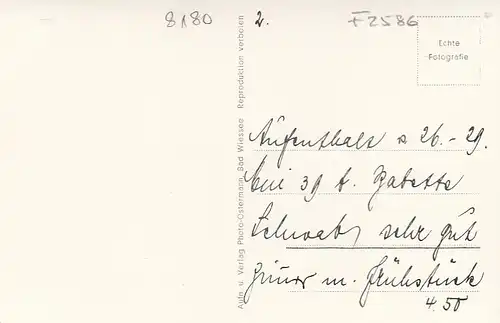 8180
2.
F2586
Echte
Fotografie
Aufn. u. Verlag Photo-Ostermann, Bad Wiessee Reproduktion verboten
Aufenthalt 26.-29.
Mai 39 b. Babette
Schwab, sehr gut
Zimmer m. Frühstück
4.50